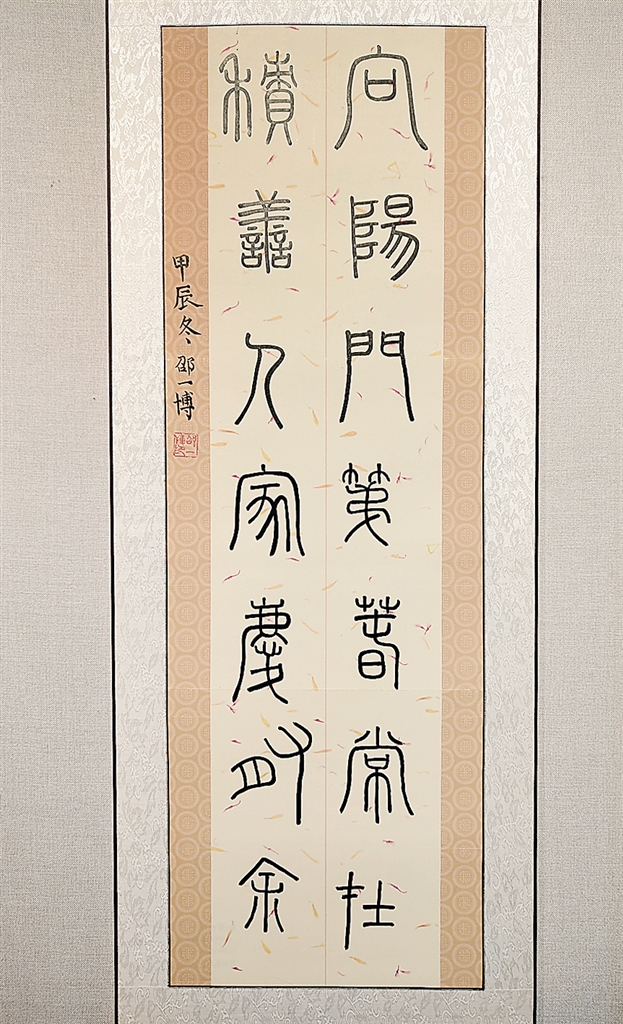 向陽門第春常在
積善人家慶有余
甲辰冬邵一博